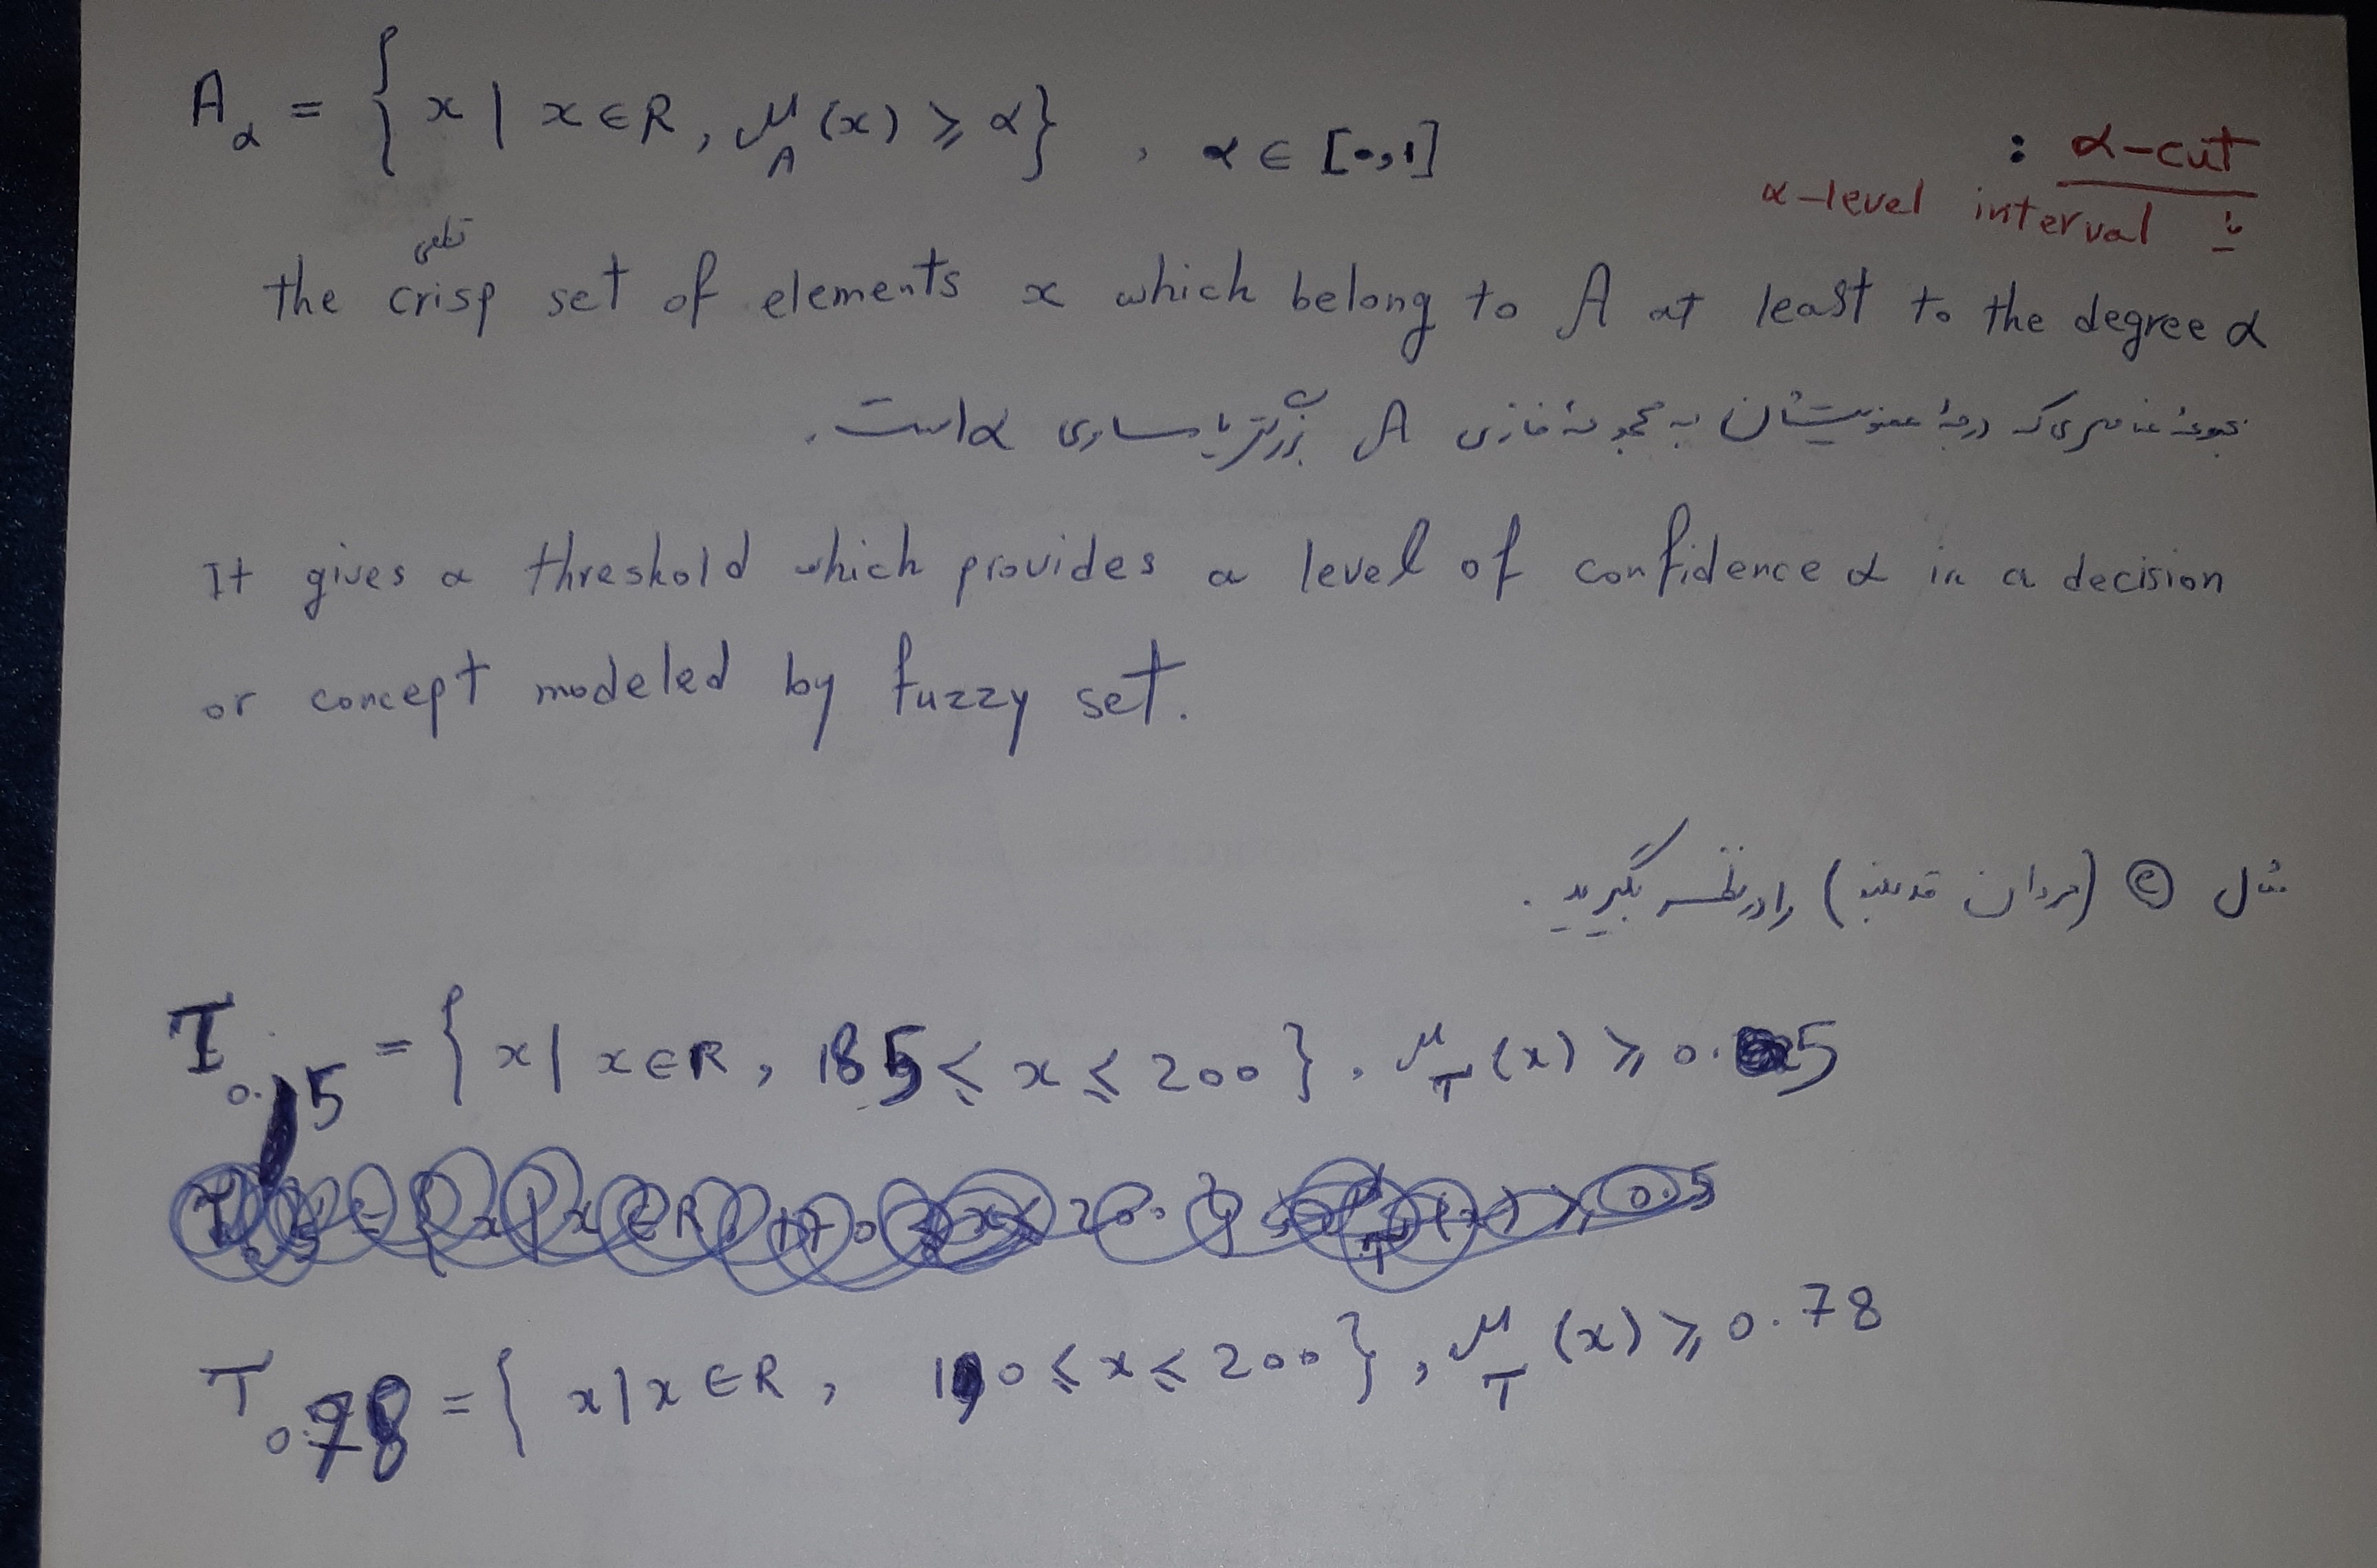 A_α = { x | x ∈ R, μ_A (x) ⩾ α} , α ∈ [۰,۱]
: α-cut
یا α-level interval
قطعی
the crisp set of elements x which belong to A at least to the degree α
مجموعهٔ عناصری که درجهٔ عضویتشان به مجموعهٔ فازی A بزرگتر یا مساوی α است.
It gives a threshold which provides a level of confidence α in a decision
or concept modeled by fuzzy set.
مثال ② (مردان قدبلند) را در نظر بگیرید.
T_0.5 = { x | x ∈ R, 185 ⩽ x ⩽ 200 }, μ_T (x) ⩾ 0.5
T_0.78 = { x | x ∈ R, 190 ⩽ x ⩽ 200 }, μ_T (x) ⩾ 0.78